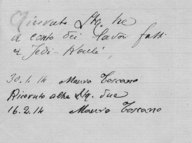 Ricevuto Stg. tre
a conto dei lavori fatti
a Jedi-Koulé,
30.1.14 Mauro Toscano
Ricevuto altre Stg. due
16.2.14 Mauro Toscano